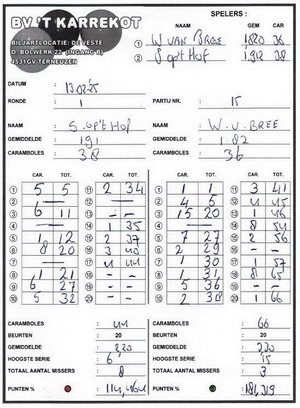 BV.'T KARREKOT
BILJARTLOCATIE: DE VESTE
O. BOLWERK 22 (INGANG B)
4531GV TERNEUZEN
SPELERS :
NAAM GEM CAR
1 W VAN BREE 1,820 36
2 S op't Hof 1,912 38
DATUM : 13-02-'25
RONDE : 1 PARTIJ NR. : 15
NAAM : S. op't Hof NAAM : W. v. BREE
GEMIDDELDE : 191 GEMIDDELDE : 1 82
CARAMBOLES : 38 CARAMBOLES : 36
CAR. TOT. CAR. TOT. CAR. TOT. CAR. TOT.
1 5 5 11 2 34 1 1 1 11 3 41
2 — 12 — 2 4 5 12 4 45
3 6 11 13 — 3 15 20 13 1 46
4 — 14 1 35 4 — 14 8 54
5 1 12 15 2 37 5 7 27 15 2 56
6 8 20 16 3 40 6 2 29 16 - -
7 — 17 4 44 7 — 17 1 57
8 1 21 18 - - 8 2 31 18 8 65
9 6 27 19 - - 9 5 36 19 - -
10 5 32 20 - - 10 2 38 20 1 66
CARAMBOLES : 44 CARAMBOLES : 66
BEURTEN : 20 BEURTEN : 20
GEMIDDELDE : 2,20 GEMIDDELDE :
HOOGSTE SERIE : 6 HOOGSTE SERIE : 15
TOTAAL AANTAL MISSERS : 8 TOTAAL AANTAL MISSERS : 3
PUNTEN % : PUNTEN % :